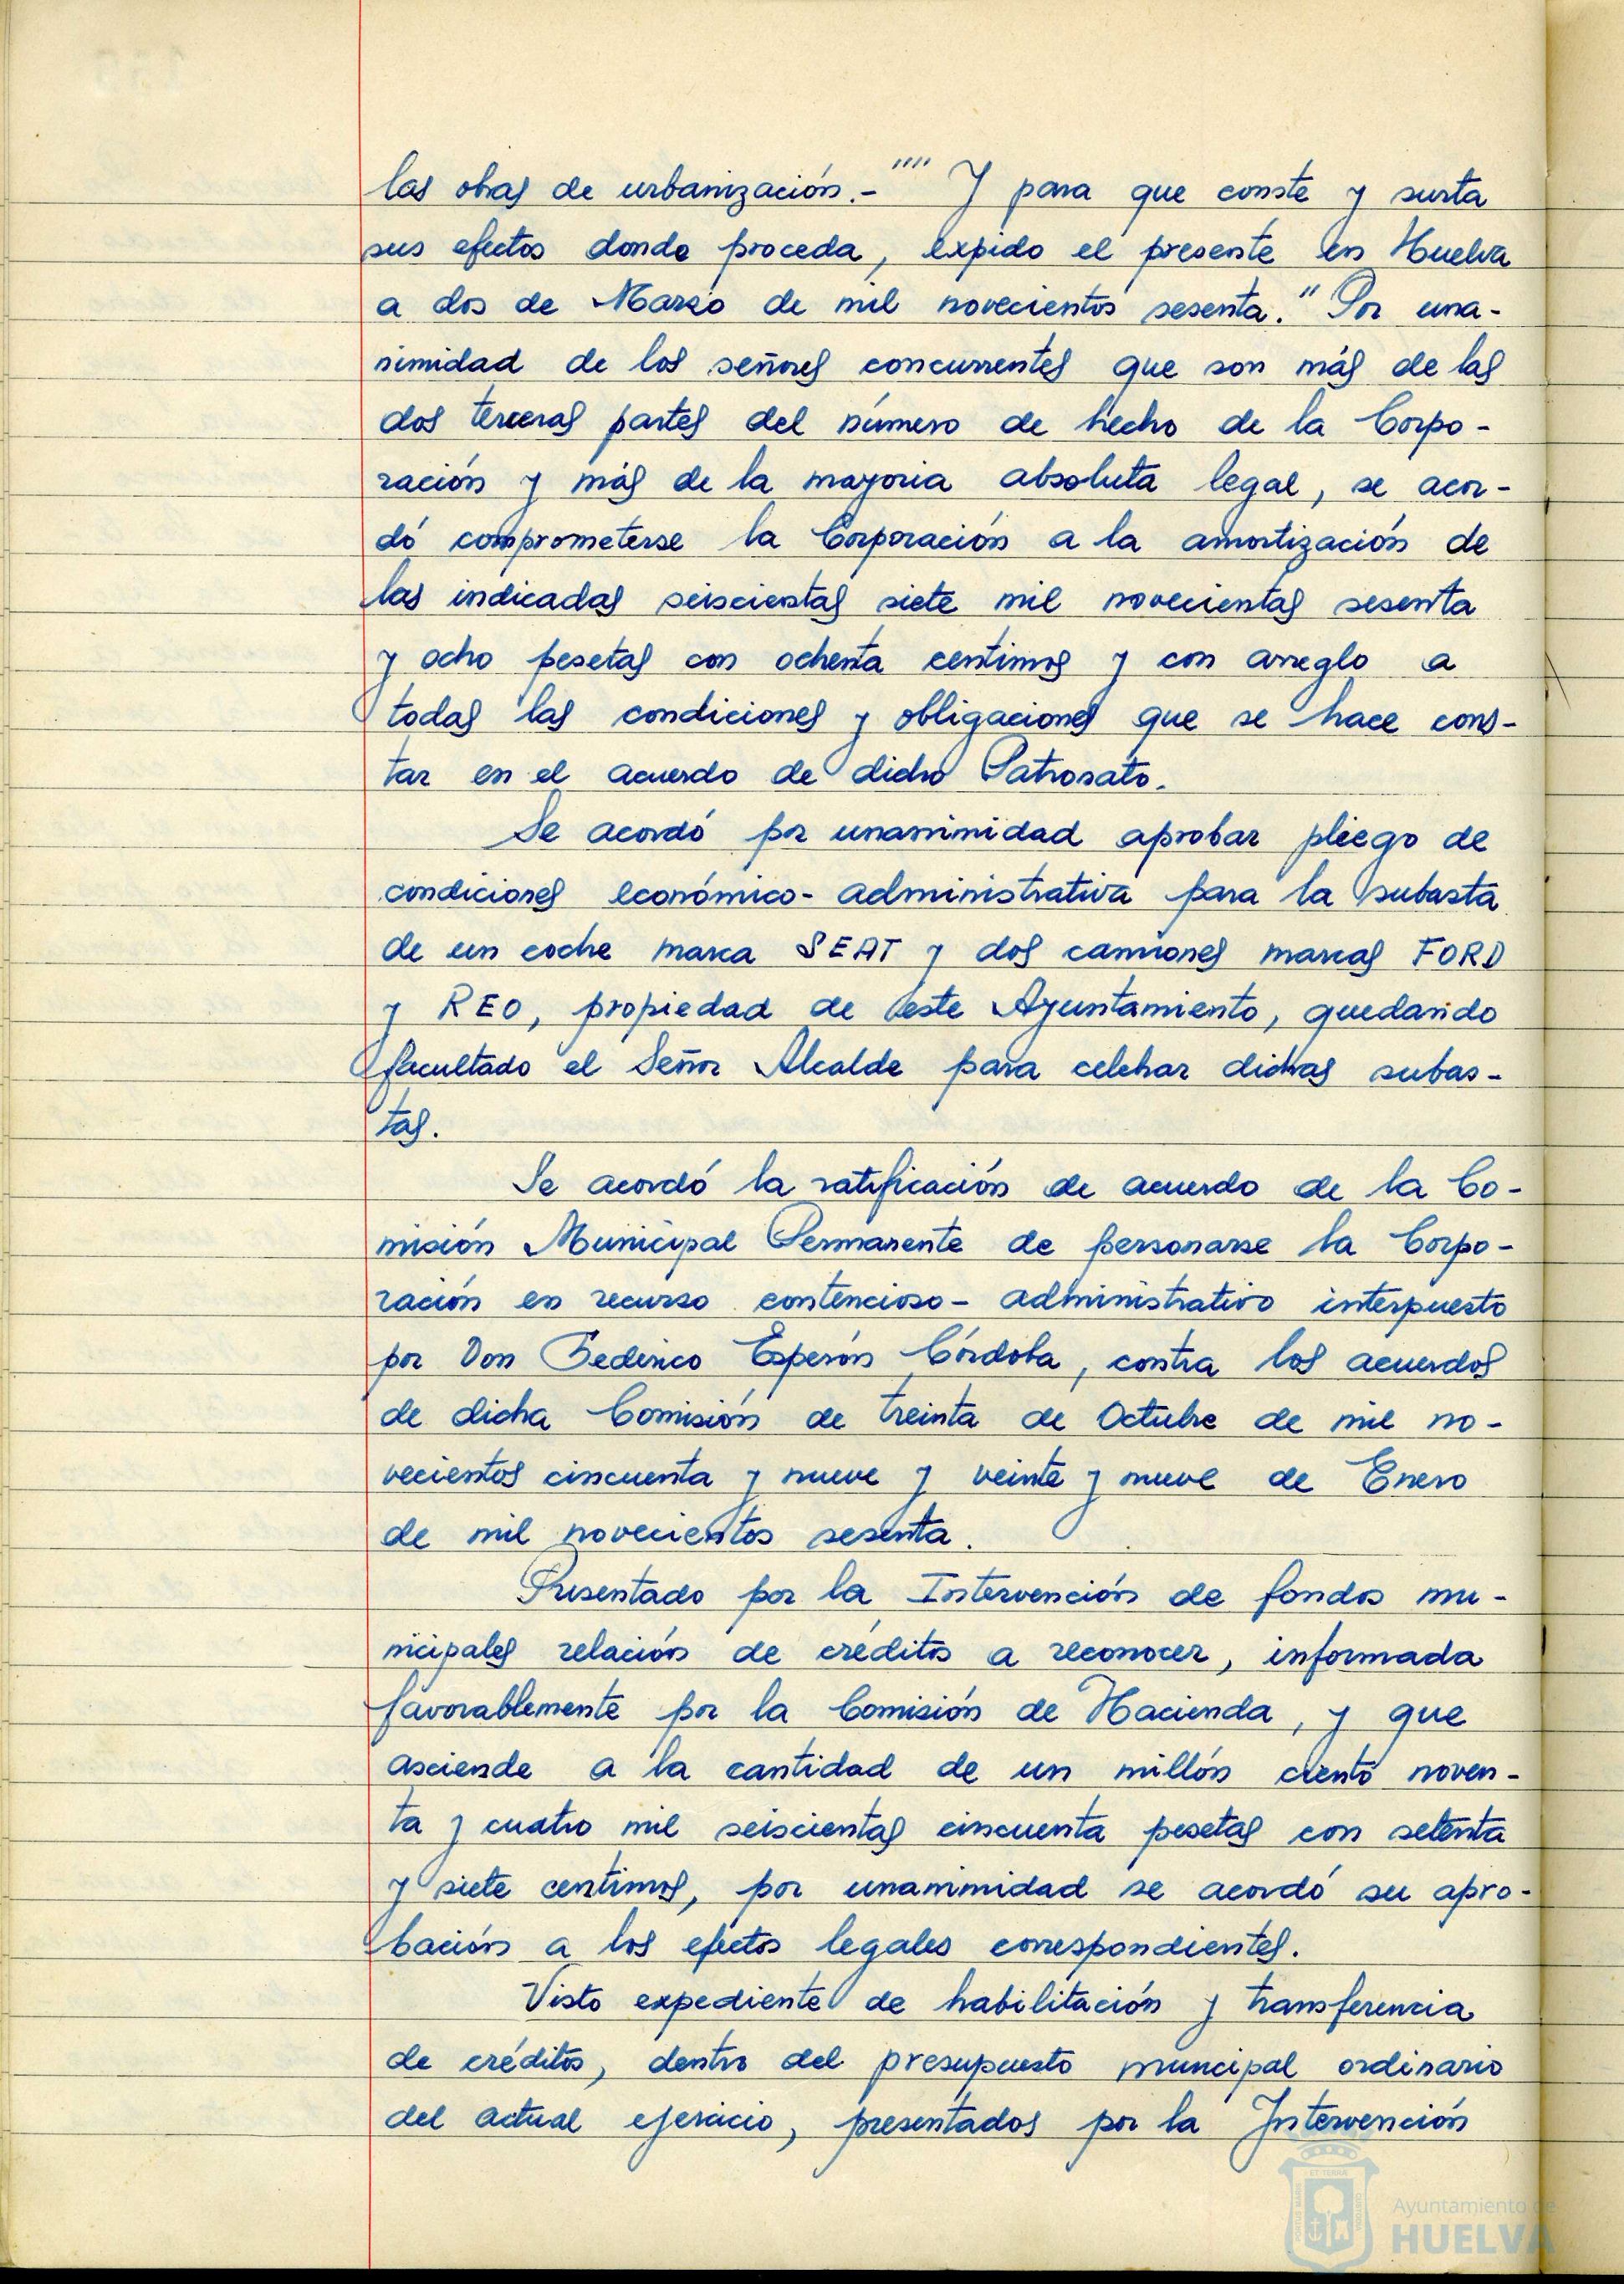 las obras de urbanización.-"" Y para que conste y surta
sus efectos donde proceda, expido el presente en Huelva
a dos de Marzo de mil novecientos sesenta." Por una-
nimidad de los señores concurrentes que son más de las
dos terceras partes del número de hecho de la Corpo-
ración y más de la mayoria absoluta legal, se acor-
dó comprometerse la Corporación a la amortización de
las indicadas seiscientas siete mil novecientas sesenta
y ocho pesetas con ochenta centimos y con arreglo a
todas las condiciones y obligaciones que se hace cons-
tar en el acuerdo de dicho Patronato.
Se acordó por unanimidad aprobar pliego de
condiciones económico-administrativa para la subasta
de un coche marca SEAT y dos camiones marcas FORD
y REO, propiedad de este Ayuntamiento, quedando
facultado el Señor Alcalde para celebrar dichas subas-
tas.
Se acordó la ratificación de acuerdo de la Co-
misión Municipal Permanente de personarse la Corpo-
ración en recurso contencioso-administrativo interpuesto
por Don Federico Esperón Córdoba, contra los acuerdos
de dicha Comisión de treinta de Octubre de mil no-
vecientos cincuenta y nueve y veinte y nueve de Enero
de mil novecientos sesenta.
Presentado por la Intervención de fondos mu-
nicipales relación de créditos a reconocer, informada
favorablemente por la Comisión de Hacienda, y que
asciende a la cantidad de un millón ciento noven-
ta y cuatro mil seiscientas cincuenta pesetas con setenta
y siete centimos, por unanimidad se acordó su apro-
bación a los efectos legales correspondientes.
Visto expediente de habilitación y transferencia
de créditos, dentro del presupuesto municipal ordinario
del actual ejercicio, presentados por la Intervención
Ayuntamiento de
HUELVA